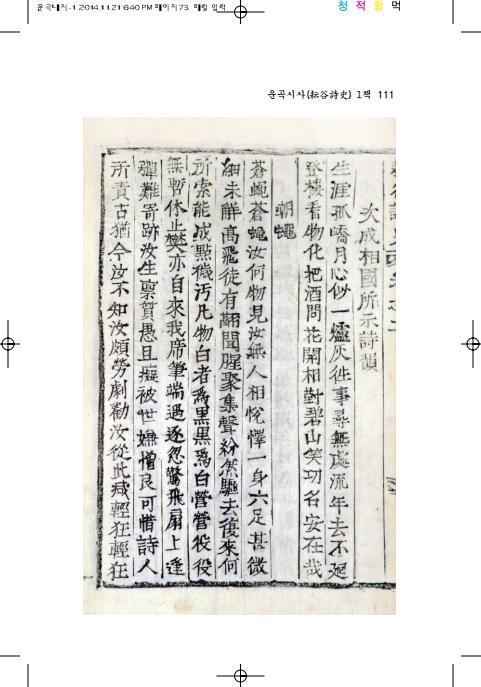 운곡내지-1 2014.11.21 6:40 PM 페이지73
청 적 황 먹
운곡시사(耘谷詩史) 1책 111
次成相國所示詩韻
生涯孤嶠月心似一爐灰往事尋無處流年去不廻
登樓看物化把酒問花開相對碧山笑功名安在哉
嘲蠅
蒼蠅蒼蠅汝何物見汝無人相悅懌一身六足甚微
細未觧高飛徒有翮聞腥聚集聲紛然驅去復來何
所索能成點穢汚凡物白者爲黑黑爲白營營役役
無暫休止樊亦自來我席筆端遇逐忽驚飛扇上逢
彈難寄跡汝生稟質愚且癡被世嫌憎良可惜詩人
所責古猶今汝不知汝頗勞劇勸汝從此减輕狂輕狂